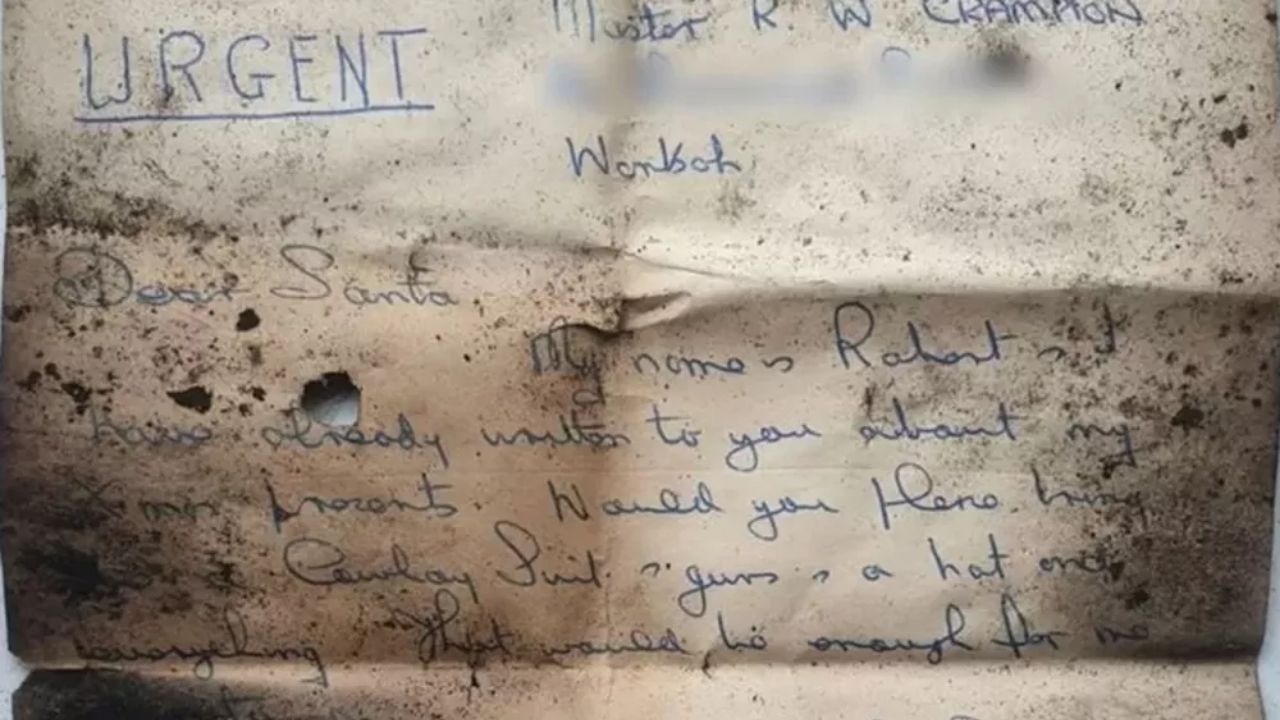 Master R W CRAMPTON
URGENT
Worksop
Dear Santa
My name is Robert & I
have already written to you about my
Xmas presents. Would you please bring
a Cowboy Suit & guns & a hat and
everything That would be enough for me